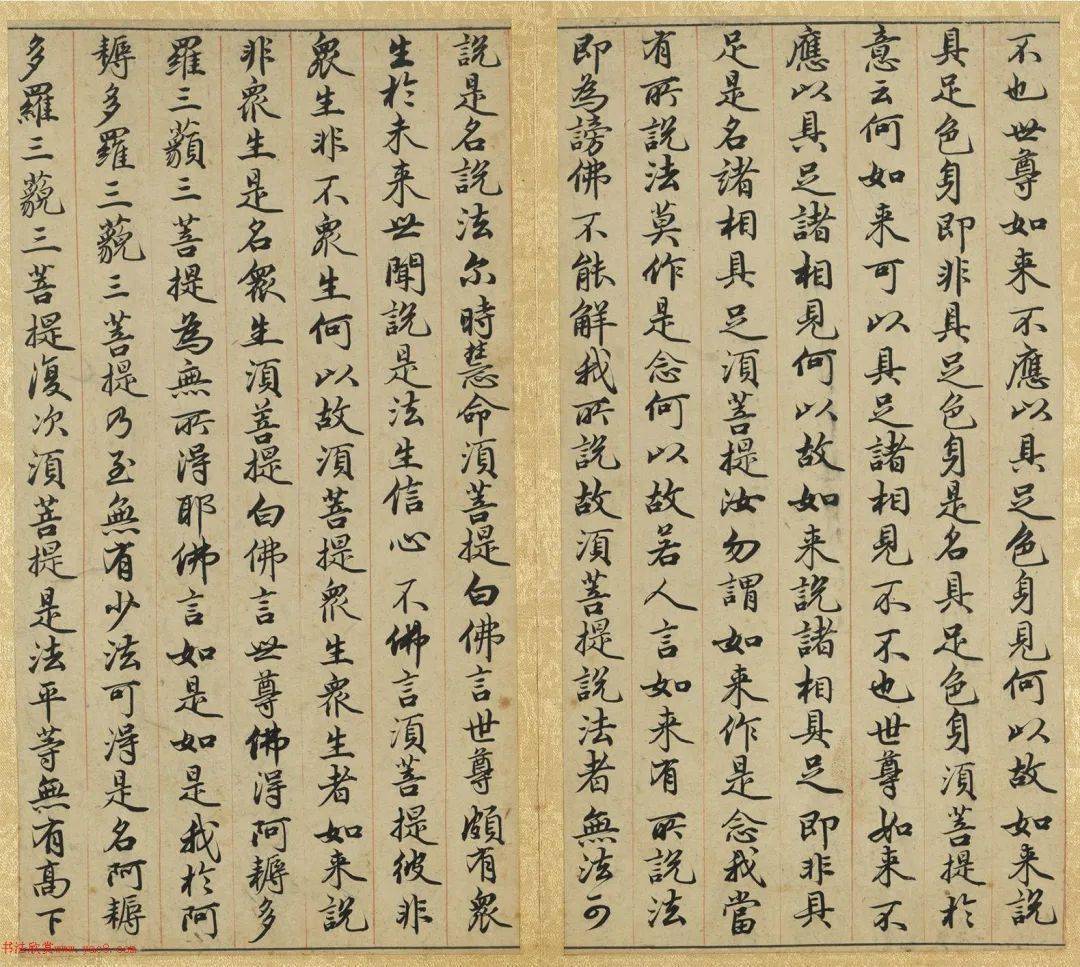 不也世尊如来不應以具足色身見何以故如来說
具足色身即非具足色身是名具足色身須菩提於
意云何如来可以具足諸相見不不也世尊如来不
應以具足諸相見何以故如来說諸相具足即非具
足是名諸相具足須菩提汝勿謂如来作是念我當
有所說法莫作是念何以故若人言如来有所說法
即為謗佛不能解我所說故須菩提說法者無法可
說是名說法尔時慧命須菩提白佛言世尊頗有衆
生於未来世聞說是法生信心不佛言須菩提彼非
衆生非不衆生何以故須菩提衆生衆生者如来說
非衆生是名衆生須菩提白佛言世尊佛得阿耨多
羅三藐三菩提為無所得耶佛言如是如是我於阿
耨多羅三藐三菩提乃至無有少法可得是名阿耨
多羅三藐三菩提復次須菩提是法平等無有高下
书法欣赏www.yac8.com